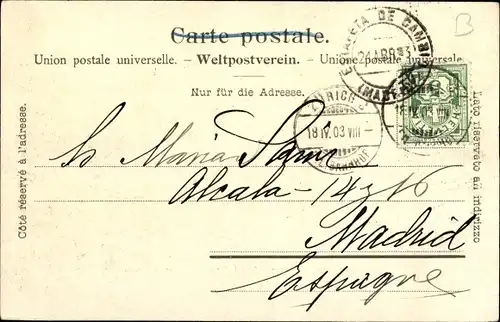 B
Carte postale.
Union postale universelle. – Weltpostverein. – Unione postale universale
Nur für die Adresse.
Côté réservé à l'adresse.
Lato riservato all'indirizzo
ESTAFETA DE CAMBIO
(MADRID)
ZÜRICH
18 IV. 03 VIII –
BAHNHOF
Maria
Alcala - 14 y 16
Madrid
Espagne